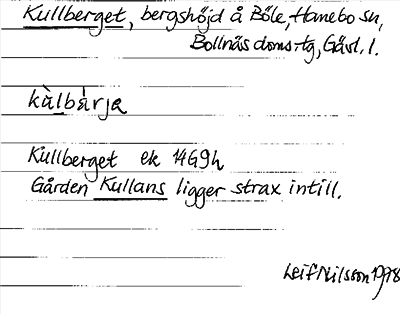 Kullberget, bergshöjd å Böle, Hanebo sn,
Bollnäs doms-tg, Gävl. l.
kàlbárja
Kullberget ek 14G9h
Gården Kullans ligger strax intill.
Leif Nilsson 1978